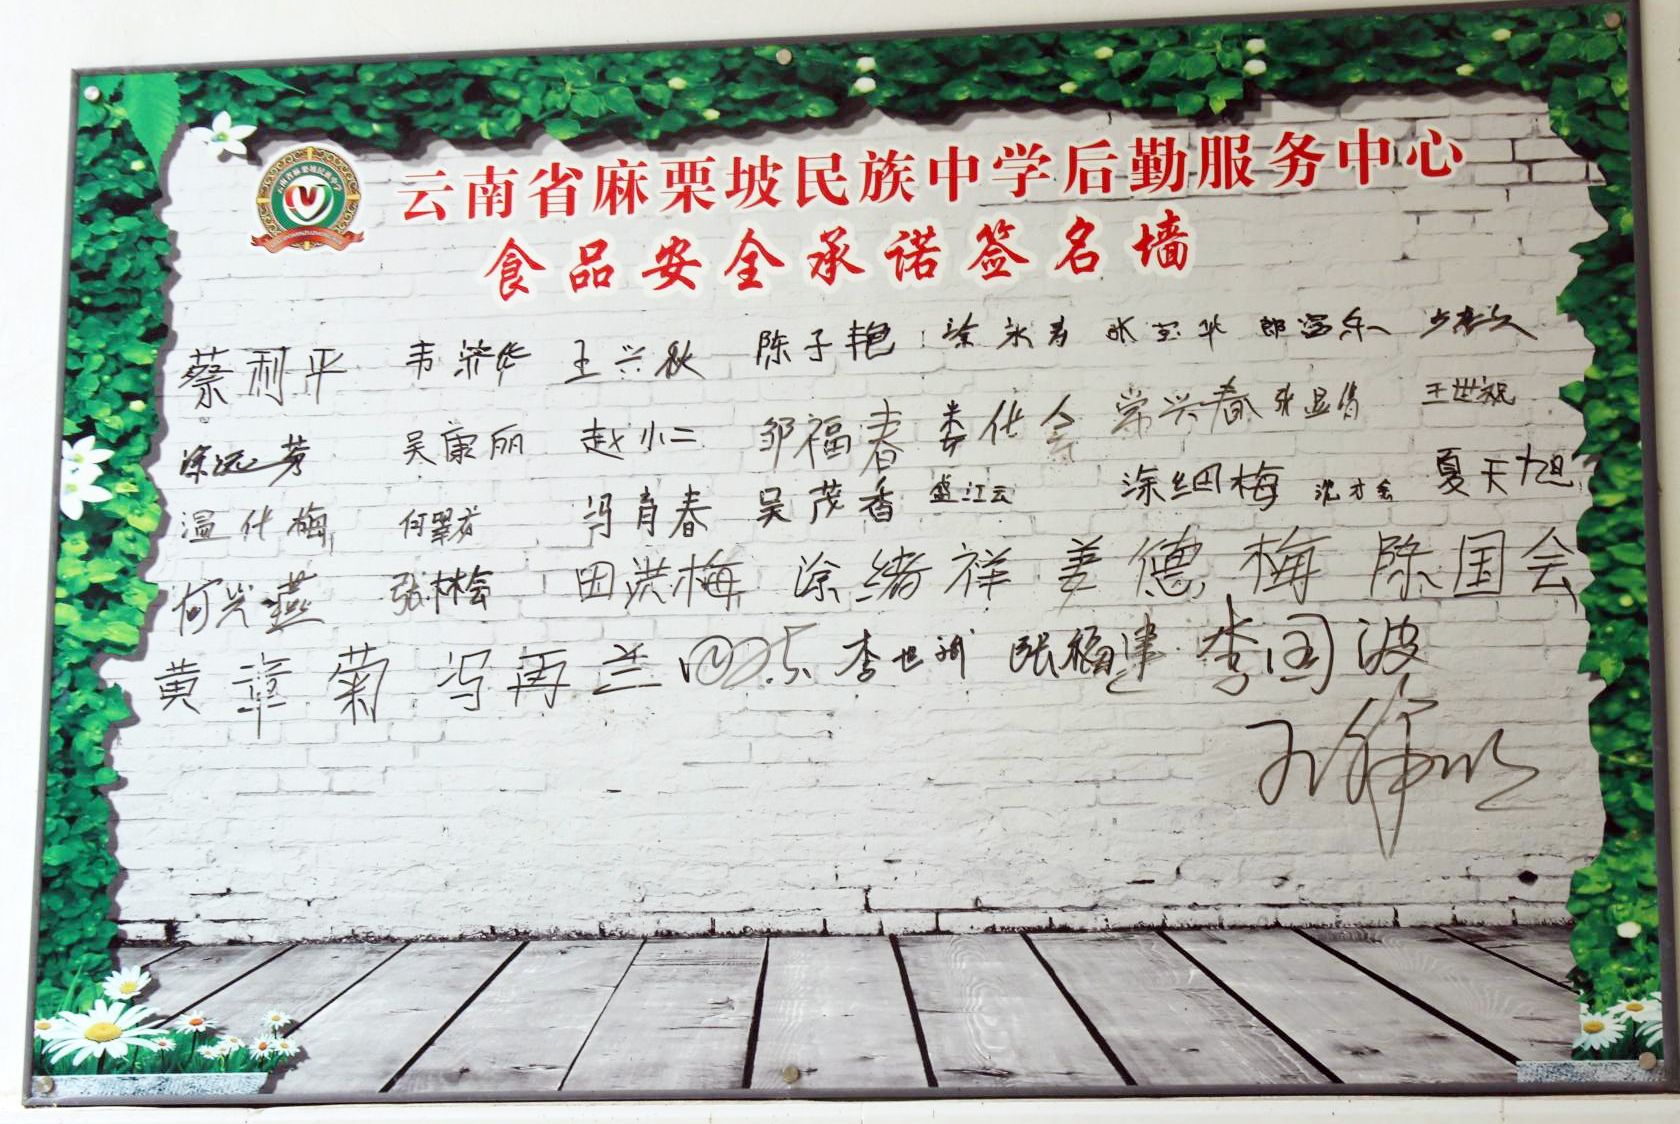 云南省麻栗坡民族中学后勤服务中心
食品安全承诺签名墙
蔡利平 韦济华 王兴秋 陈子艳 涂永寿
涂远芳 吴康丽 赵小二 邹福春 娄代会 常兴春 张显肖 王世祝
温代梅 何翠芬 冯育春 吴茂香 盛江云 涂细梅 沈才会 夏天旭
何兴燕 张林会 田洪梅 涂绪祥 姜德梅 陈国会
黄章菊 冯再兰 李世斌 张福建 李国波